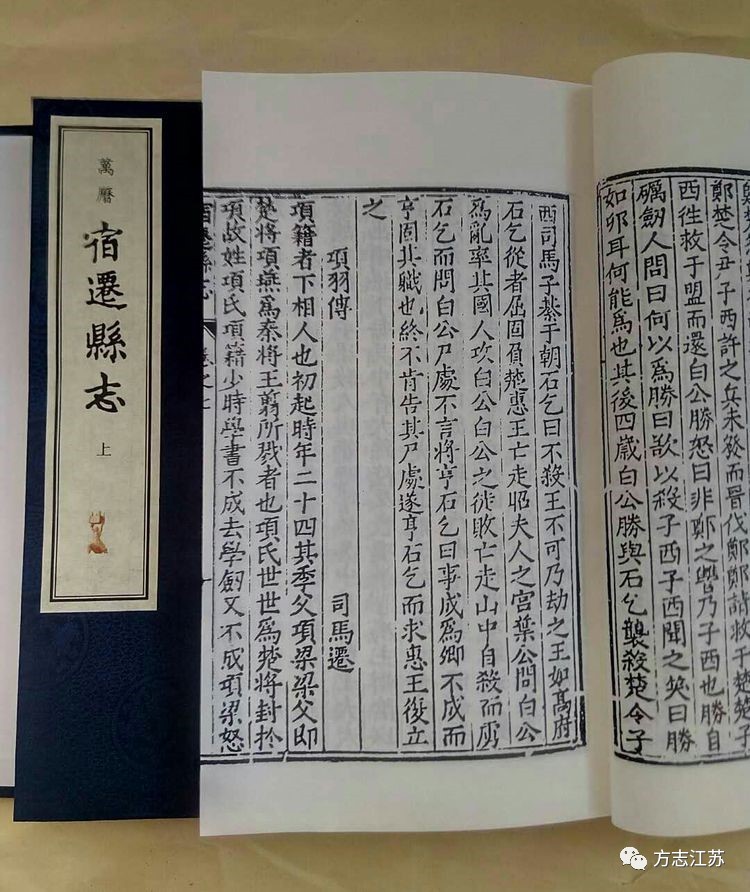 萬曆
宿遷縣志
上
鄭楚令尹子西許之兵未發而晉伐鄭鄭請救于楚楚子
西徃救于盟而還白公勝怒曰非鄭之讐乃子西也勝自
礪劒人問曰何以為勝曰欲以殺子西子西聞之笑曰勝
如卵耳何能為也其後四歲白公勝與石乞襲殺楚令子
西司馬子綦于朝石乞曰不殺王不可乃劫之王如髙府
石乞從者屈固負楚惠王亡走昭夫人之宫葉公問白公
為亂率其國人攻白公白公之徒敗亡走山中自殺而虜
石乞而問白公尸處不言將亨石乞曰事成為卿不成而
亨固其職也終不肯告其尸處遂亨石乞而求惠王復立
之
項羽傳 司馬遷
項籍者下相人也初起時年二十四其季父項梁梁父即
楚將項燕為秦將王翦所戮者也項氏世世為楚將封於
項故姓項氏項籍少時學書不成去學劒又不成項梁怒
宿遷縣志
方志江苏